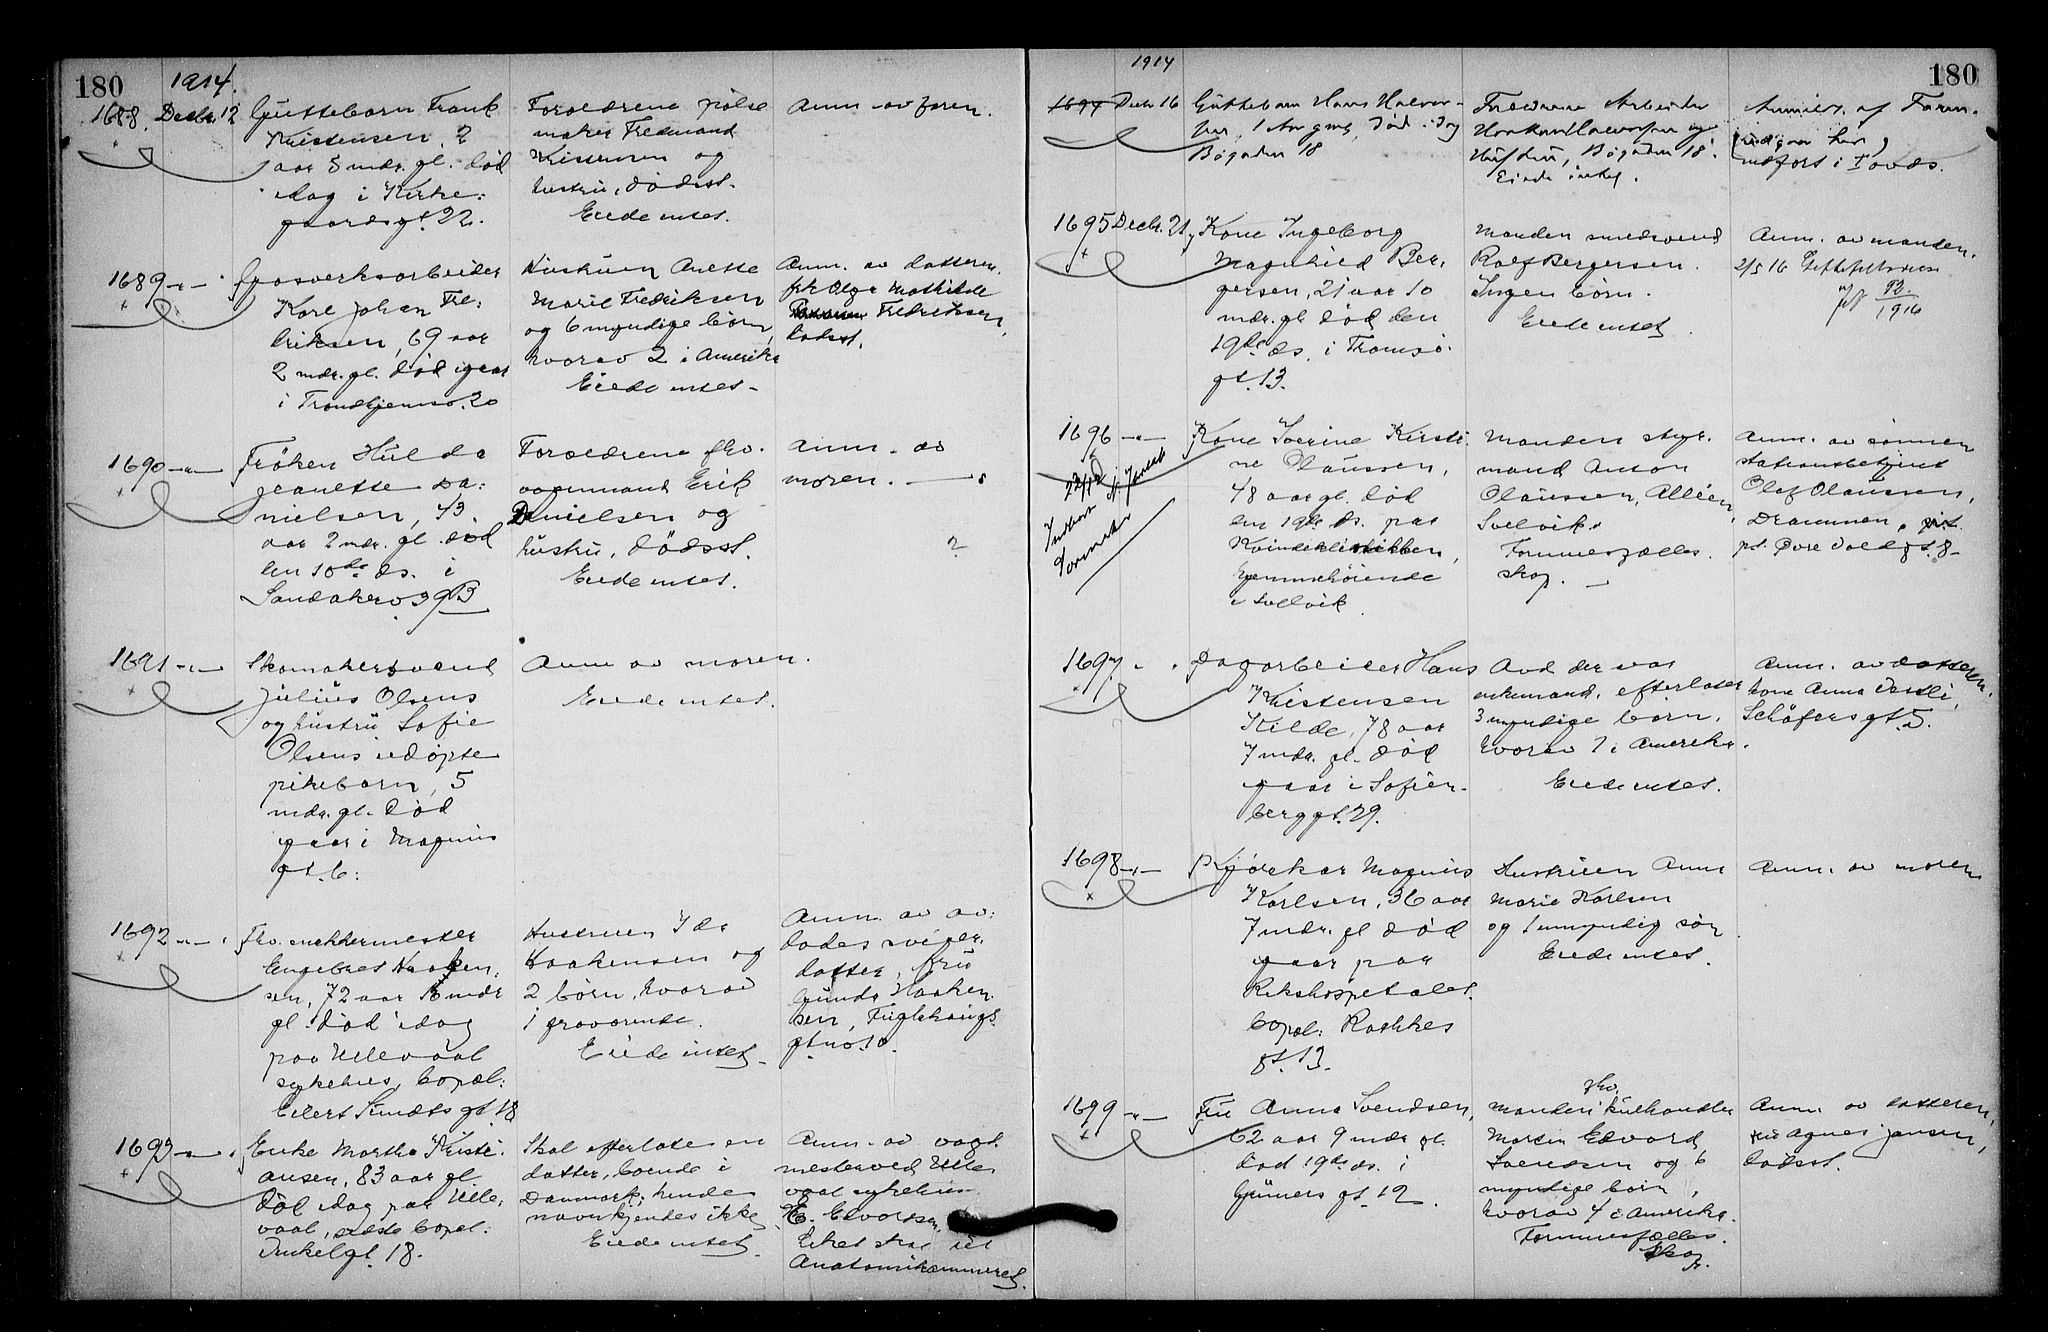 180
1914.
1688. Decbr. 12
Guttebarn Frank
Kristensen, 2
aar 5 mdr. gl. død
idag i Kirke:
gaardsgt. 22.
Forældrene pølse
maker Fredmand
Kristensen og
hustru, dødsst.
Eiede intet.
Anm. av faren.
1689 -"-
Gasverksarbeider
Karl Johan Fre:
driksen, 69 aar
2 mdr. gl. død igaar
i Trondhjemsv. 20
Hustruen Anette
Marie Fredriksen
og 6 myndige børn,
hvorav 2 i Amerika
Eiede intet.
Anm. av datteren,
frk Olga Mathilde
Fredriksen,
dødsst.
1690 -"-
Frøken Hulda
Jeanette Da:
nielsen, 43
aar 2 mdr. gl. død
den 10de ds. i
Sandakerv. 39 B
Forældrene fhv.
vognmand Erik
Danielsen og
hustru, dødsst.
Eiede intet.
Anm. av
moren.
?
1691 -"-
Skomakersvend
Julius Olsens
og hustru Sofie
Olsens udøpte
pikebarn, 5
mdr. gl. død
igaar i Magnus
gt. 6.
Anm av moren.
Eiede intet.
1692 -"-
Fhv.
Engebret Haaken:
sen, 72 aar 8 mdr
gl. død idag
paa Ullevaal
sykehus, bopæl:
Eilert Sundts gt. 18
Hustruen Ida
Haakensen og
2 børn, hvorav
1 fraværende.
Eiede intet.
Anm. av av:
dødes sviger:
datter, fru
Gunda Haaken
sen, Fuglehaugs
gt. no. 10.
1693 -"-
Enke Martha Kristi:
ansen, 83 aar gl.
død idag paa Ulle:
vaal, sidste bopæl:
Inkognitogt. 18.
Skal efterlate en
datter, boende i
Danmark, hendes
navn kjendes ikke
Eiede intet.
Anm. av vagt
mester ved Ulle
vaal sykehus
E. Edvardsen.
Liket skal til
Anatomikammeret.
1914
180
1694 Decbr 16
Guttebarn Hans Halvor-
sen, 1 Aar gml, død idag
Bøgaden 18
Forældrene Arbeider
Haakon Halvorsen og
Hustru, Bøgaden 18.
Eiede intet.
Anmeldt af Faren.
(udgaar her,
indført i
1695 Decbr. 21.
Kone Ingeborg
Magnhild Ber:
gersen, 21 aar 10
mdr. gl død den
19de ds. i Tromsø
gt. 13.
Manden smedsvend
Rolf Bergersen.
Ingen børn.
Eiede intet.
Anm. av manden.
2/5 16 Skifteattest
1916
1696 -"-
Kone Severine Kirsti:
ne Olaussen,
48 aar gl. død
den 19de ds. paa
Kvindeklinikken,
hjemmehørende
i Svelvik.
Manden styr:
mand Anton
Olaussen, Alléen,
Svelvik.
Formuesfælles
skap.
Anm. av sønnen
stationsbetjent
Olaf Olaussen,
Drammen.
1697 "
Dagarbeider Hans
Kristensen
Kilde, 78 aar
7 mdr. gl. død
igaar i Sofien-
berggt. 29.
Avd der var
enkemand, efterlater
3 myndige børn,
hvorav 1 i Amerika.
Eiede intet.
Anm. av datteren,
kone Anna Vestli,
Schäfers gt. 5.
1698 -"-
Kjørekar Magnus
Karlsen, 36 aar
7 mdr. gl død
igaar paa
Rikshospitalet.
bopæl: Rathkes
gt. 13.
Hustruen Anna
Marie Karlsen
og 1 umyndig søn
Eiede intet.
Anm. av moren
1699 -"-
Fru Anna Svendsen,
62 aar 9 mdr gl.
død 19de ds. i
Grüners gt. 12.
fhv.
Manden kulhandler
Martin Edvard
Svendsen og 6
myndige børn,
hvorav 4 i Amerika.
Formuesfælles
skap.
Anm. av datteren,
fru Agnes Jansen,
dødsst.